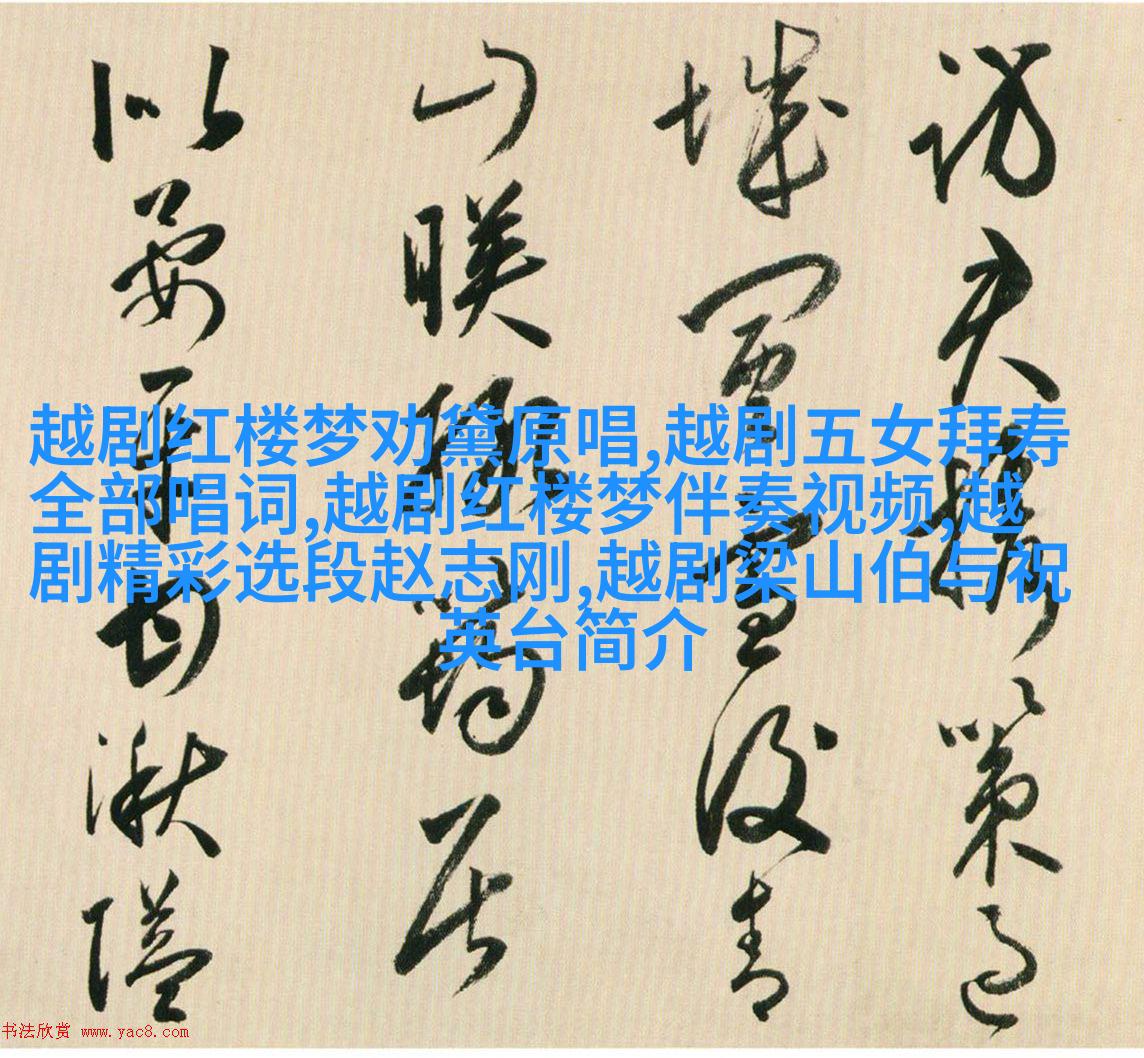 越剧红楼梦劝黛原唱,越剧五女拜寿
全部唱词,越剧红楼梦伴奏视频,越
剧精彩选段赵志刚,越剧梁山伯与祝
英台简介
策過
城雪後青
山映居
以晏平湫隘
书法欣赏 www.yac8.com